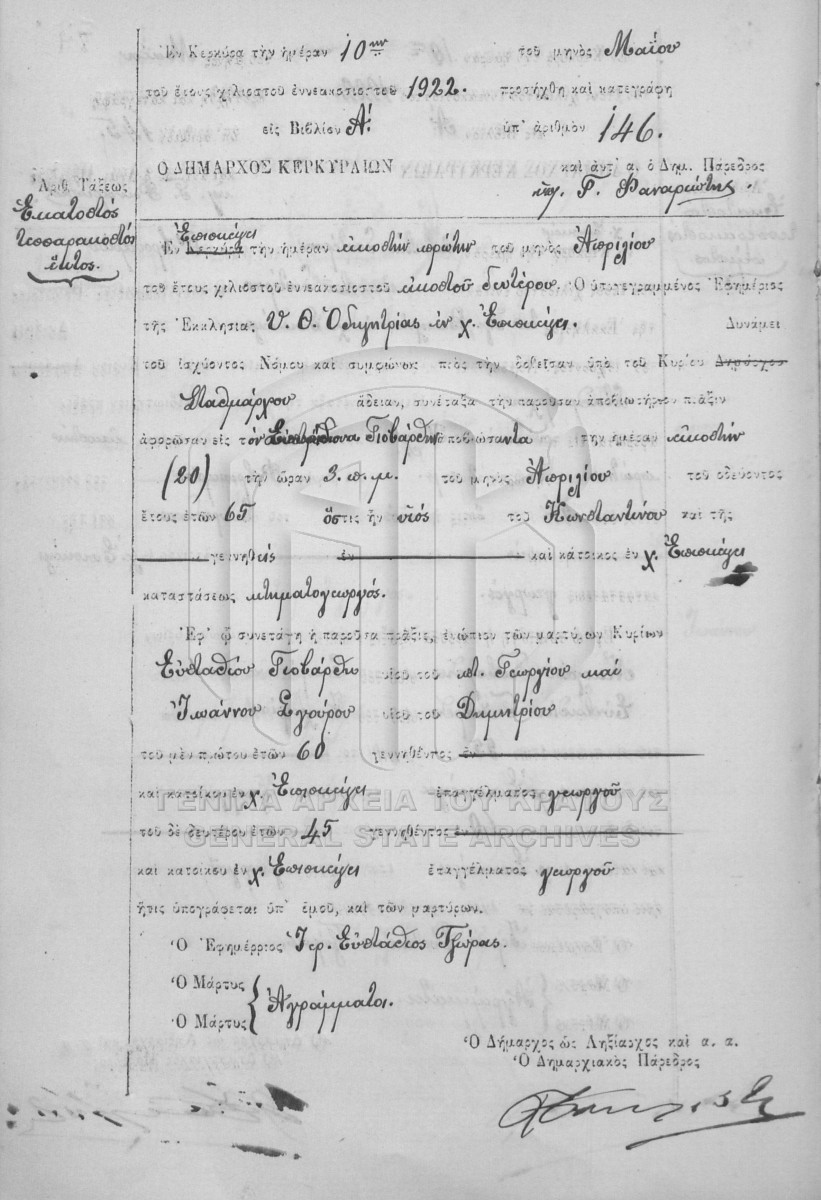 Ἐν Κερκύρᾳ τὴν ἡμέραν 10ην τοῦ μηνὸς Μαΐου
τοῦ ἔτους χιλιοστοῦ ἐννεακοσιοστοῦ 1922. προσήχθη καὶ κατεγράφη
εἰς Βιβλίον Α΄. ὑπ' ἀριθμὸν 146.
Ο ΔΗΜΑΡΧΟΣ ΚΕΡΚΥΡΑΙΩΝ
καὶ ἀντ' α. ὁ Δημ. Πάρεδρος
Γ. Φαναριώτης.
Ἀριθ. Τάξεως
Ἑκατοστός
τεσσαρακοστός
ἕκτος.
Ἐπισκέψει
Ἐν Κερκύρᾳ τὴν ἡμέραν εἰκοστὴν πρώτην τοῦ μηνὸς Ἀπριλίου
τοῦ ἔτους χιλιοστοῦ ἐννεακοσιοστοῦ εἰκοστοῦ δευτέρου. Ὁ ὑπογεγραμμένος Ἐφημέριος
τῆς Ἐκκλησίας Υ. Θ. Ὁδηγητρίας ἐν χ. Ἐπισκέψει. Δυνάμει
τοῦ ἰσχύοντος Νόμου καὶ συμφώνως πρὸς τὴν δοθεῖσαν ὑπὸ τοῦ Κυρίου Δημάρχου
Σταθμάρχου ἄδειαν, συνέταξα τὴν παροῦσαν ἀποβιωτήριον πρᾶξιν
ἀφορῶσαν εἰς τὸν Γιοβάρθην ἀποβιώσαντα τὴν ἡμέραν εἰκοστὴν
(20) τὴν ὥραν 3. π. μ. τοῦ μηνὸς Ἀπριλίου τοῦ ὁδεύοντος
ἔτους ἐτῶν 65 ὅστις ἦν υἱὸς τοῦ Κωνσταντίνου καὶ τῆς
γεννηθεὶς ἐν καὶ κάτοικος ἐν χ. Ἐπισκέψει
καταστάσεως κτηματογεωργός.
Ἐφ' ᾧ συνετάγη ἡ παροῦσα πρᾶξις, ἐνώπιον τῶν μαρτύρων Κυρίων
Εὐσταθίου Γιοβάρθη υἱοῦ τοῦ Γεωργίου καὶ
Ἰωάννου Σγούρου υἱοῦ τοῦ Δημητρίου
τοῦ μὲν πρώτου ἐτῶν 60 γεννηθέντος ἐν
καὶ κατοίκου ἐν χ. Ἐπισκέψει ἐπαγγέλματος γεωργοῦ
τοῦ δὲ δευτέρου ἐτῶν 45 γεννηθέντος ἐν
καὶ κατοίκου ἐν χ. Ἐπισκέψει ἐπαγγέλματος γεωργοῦ
ἥτις ὑπογράφεται ὑπ' ἐμοῦ, καὶ τῶν μαρτύρων.
Ὁ Ἐφημέρριος Ἱερ. Εὐστάθιος Τζώρας.
Ὁ Μάρτυς
Ἀγράμματοι.
Ὁ Μάρτυς
Ὁ Δήμαρχος ὡς Ληξίαρχος καὶ α. α.
Ὁ Δημαρχιακὸς Πάρεδρος
ΓΕΝΙΚΑ ΑΡΧΕΙΑ ΤΟΥ ΚΡΑΤΟΥΣ
GENERAL STATE ARCHIVES